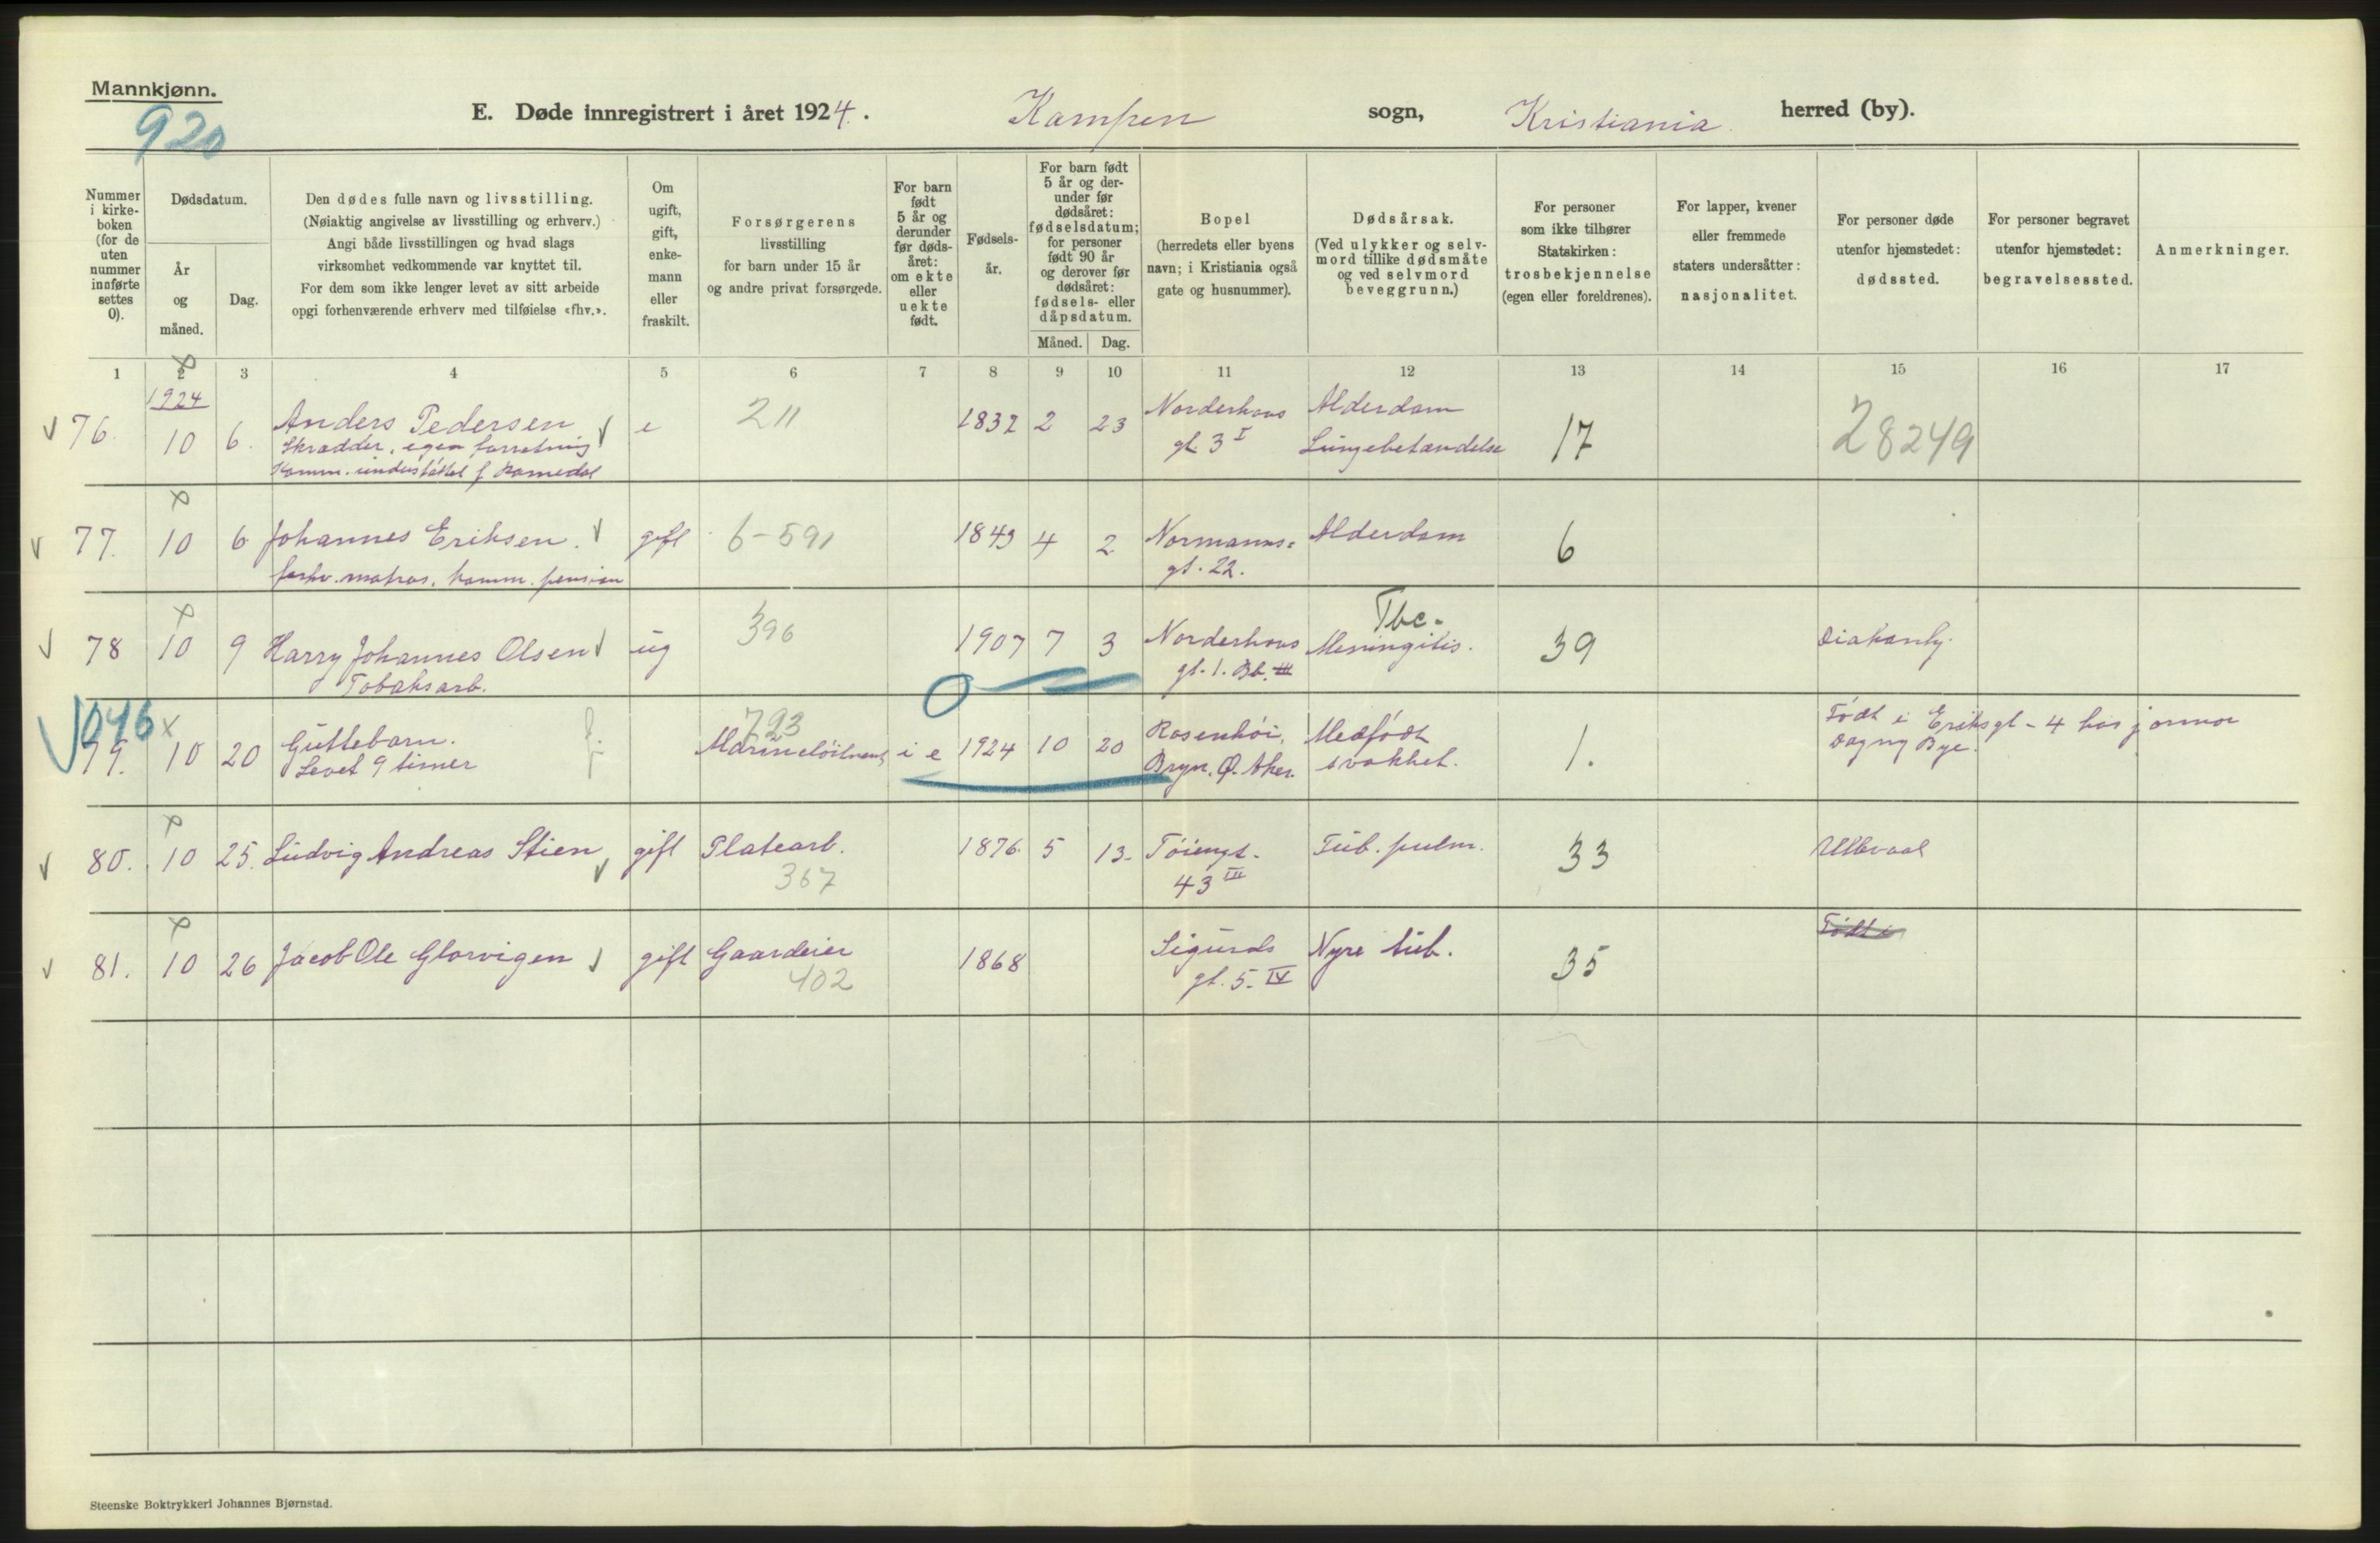 Mannkjønn.
920
E. Døde innregistrert i året 1924. Kampen sogn, Kristiania herred (by).
Nummer
i kirke-
boken
(for de
uten
nummer
innførte
settes
0).
Dødsdatum.
År
og
måned.
Dag.
Den dødes fulle navn og livsstilling.
(Nøiaktig angivelse av livsstilling og erhverv.)
Angi både livsstillingen og hvad slags
virksomhet vedkommende var knyttet til.
For dem som ikke lenger levet av sitt arbeide
opgi forhenværende erhverv med tilføielse «fhv.».
Om
ugift,
gift,
enke-
mann
eller
fraskilt.
Forsørgerens
livsstilling
for barn under 15 år
og andre privat forsørgede.
For barn
født
5 år og
derunder
før døds-
året:
om ekte
eller
uekte
født.
Fødsels-
år.
For barn født
5 år og der-
under før
dødsåret:
fødselsdatum;
for personer
født 90 år
og derover før
dødsåret:
fødsels- eller
dåpsdatum.
Måned. Dag.
Bopel
(herredets eller byens
navn; i Kristiania også
gate og husnummer).
Dødsårsak.
(Ved ulykker og selv-
mord tillike dødsmåte
og ved selvmord
beveggrunn.)
For personer
som ikke tilhører
Statskirken:
trosbekjennelse
(egen eller foreldrenes).
For lapper, kvener
eller fremmede
staters undersåtter:
nasjonalitet.
For personer døde
utenfor hjemstedet:
dødssted.
For personer begravet
utenfor hjemstedet:
begravelsessted.
Anmerkninger.
1 2 3 4 5 6 7 8 9 10 11 12 13 14 15 16 17
1924
76. 10 6. Anders Pedersen e 211 1832 2 23 Norderhovs Alderdom 17 28249
Skrædder, egen forretning gt. 3 I Lungebetændelse
Komm. understøttet f Romedal
77. 10 6 Johannes Eriksen. gift 6-591 1843 4 2 Normanns= Alderdom 6
forhv. matros. komm. pension gt. 22.
Tbc.
78 10 9 Harry Johannes Olsen ug 396 1907 7 3 Norderhovs Meningitis. 39 Diakonhj.
Tobaksarb. gt. 1. Bb. III
1046
79. 10 20 Guttebarn. f. 793 Marineløitnant i e 1924 10 20 Rosenhói, Medfødt 1. Født i Eriksgt - 4 hos jormor
Levet 9 timer Bryn. Ø. Aker. svakhet. Dagny Bye.
80. 10 25. Ludvig Andreas Stien gift Platearb. 1876. 5 13. Tóiengt. Tub. pulm. 33 Ullevaal
367 43 III
81. 10 26 Jacob Ole Glorvigen gift Gaardeier 1868 Sigurds Nyre tub. 35 Født i
402 gt. 5. IV
Steenske Boktrykkeri Johannes Bjørnstad.